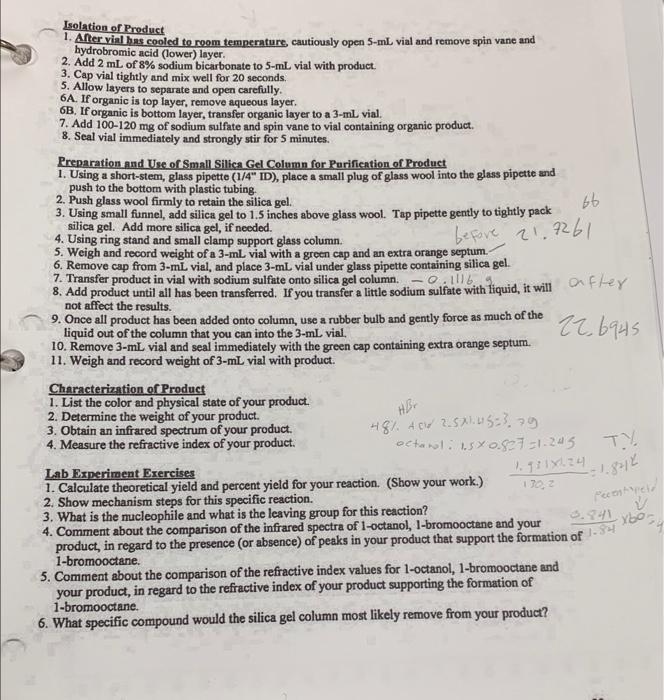 Isolation of Product
1. After vial has cooled to room temperature, cautiously open 5-mL vial and remove spin vane and
hydrobromic acid (lower) layer.
2. Add 2 mL of 8% sodium bicarbonate to 5-mL vial with product.
3. Cap vial tightly and mix well for 20 seconds.
5. Allow layers to separate and open carefully.
6A. If organic is top layer, remove aqueous layer.
6B. If organic is bottom layer, transfer organic layer to a 3-mL vial.
7. Add 100-120 mg of sodium sulfate and spin vane to vial containing organic product.
8. Seal vial immediately and strongly stir for 5 minutes.
Preparation and Use of Small Silica Gel Column for Purification of Product
1. Using a short-stem, glass pipette (1/4" ID), place a small plug of glass wool into the glass pipette and
push to the bottom with plastic tubing.
2. Push glass wool firmly to retain the silica gel.
66
3. Using small funnel, add silica gel to 1.5 inches above glass wool. Tap pipette gently to tightly pack
silica gel. Add more silica gel, if needed.
before 21.7261
4. Using ring stand and small clamp support glass column.
5. Weigh and record weight of a 3-mL vial with a green cap and an extra orange septum.
6. Remove cap from 3-mL vial, and place 3-mL vial under glass pipette containing silica gel.
7. Transfer product in vial with sodium sulfate onto silica gel column. - 0.1116
after
8. Add product until all has been transferred. If you transfer a little sodium sulfate with liquid, it will
not affect the results.
9. Once all product has been added onto column, use a rubber bulb and gently force as much of the
liquid out of the column that you can into the 3-mL vial.
22.6945
10. Remove 3-mL vial and seal immediately with the green cap containing extra orange septum.
11. Weigh and record weight of 3-mL vial with product.
Characterization of Product
1. List the color and physical state of your product.
HBr
2. Determine the weight of your product.
48%. Acid 2.5x1.45=3.7g
3. Obtain an infrared spectrum of your product.
4. Measure the refractive index of your product.
octanol: 1.5 x 0.827=1.245
T.Y.
Lab Experiment Exercises
1. Calculate theoretical yield and percent yield for your reaction. (Show your work.)
130.2
2. Show mechanism steps for this specific reaction.
3. What is the nucleophile and what is the leaving group for this reaction?
0.841
1.84
4. Comment about the comparison of the infrared spectra of 1-octanol, 1-bromooctane and your
product, in regard to the presence (or absence) of peaks in your product that support the formation of
1-bromooctane.
5. Comment about the comparison of the refractive index values for 1-octanol, 1-bromooctane and
your product, in regard to the refractive index of your product supporting the formation of
1-bromooctane.
6. What specific compound would the silica gel column most likely remove from your product?